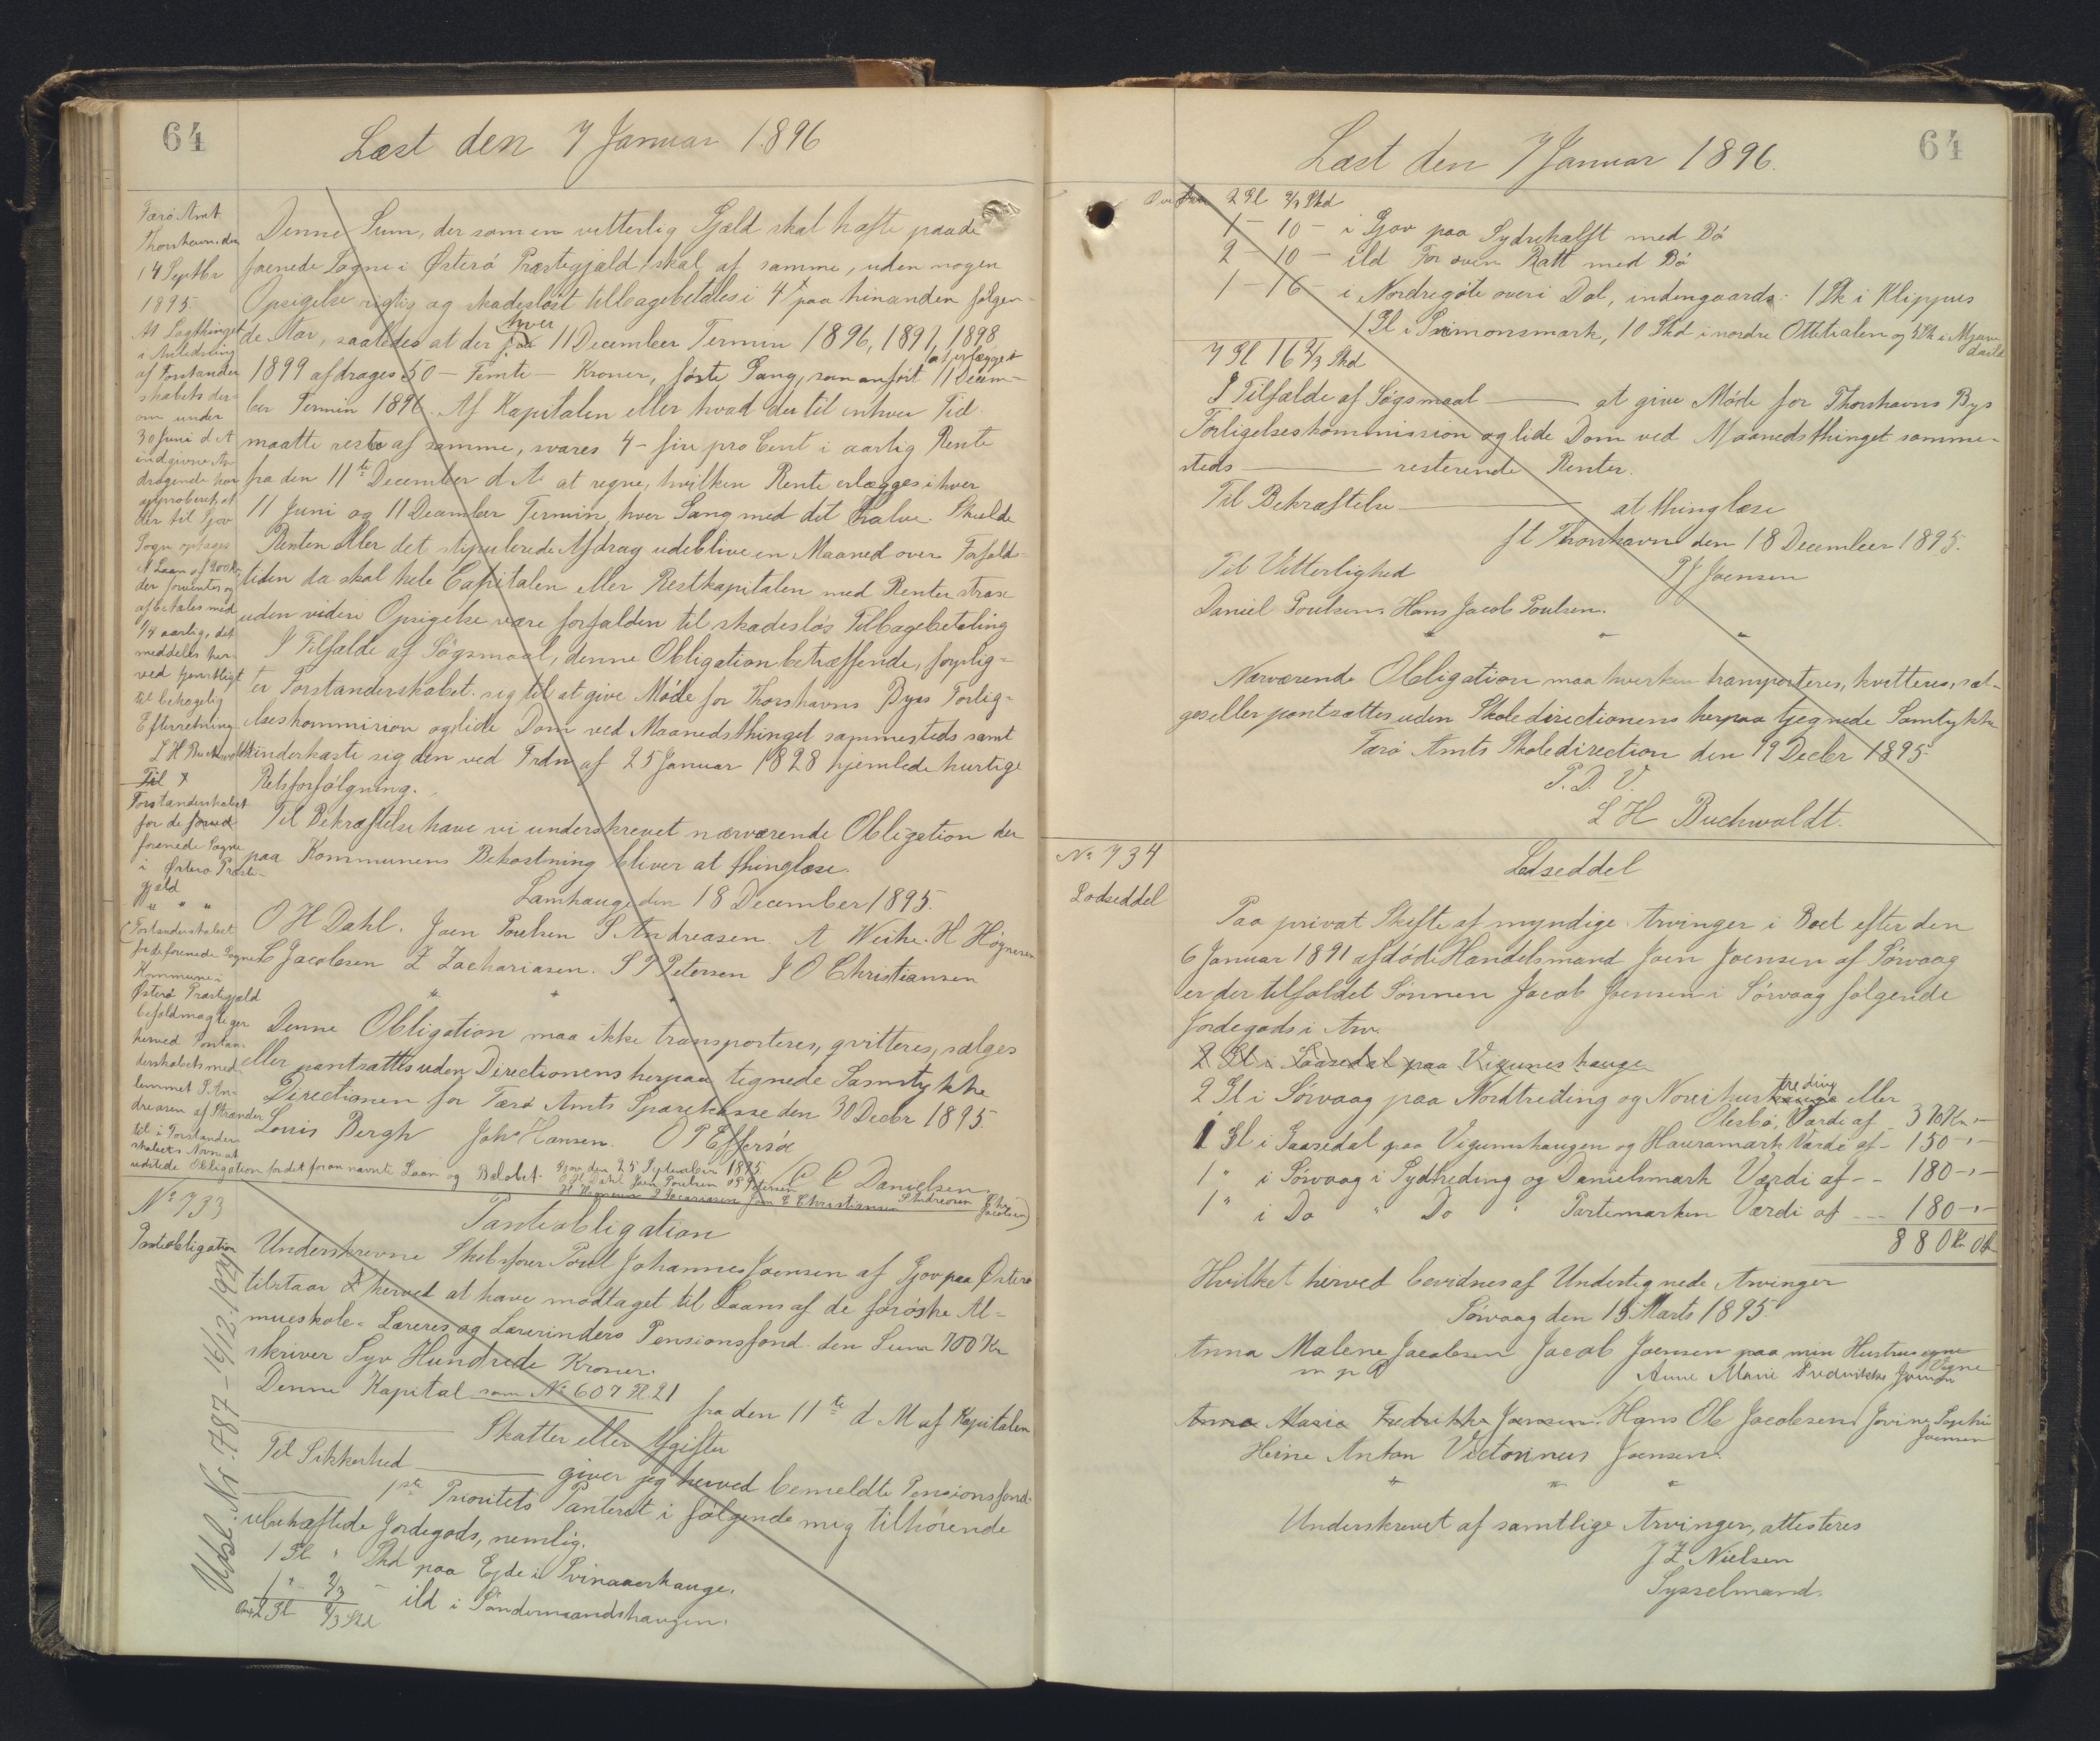 64
Læst den 7 Januar 1896
Færø Amt
Thorshavn den
14 Septbr
1895.
At Lagthinget
i Anledning
af Forstander
skabets der-
om under
30 Juni d A
indgivne An-
dragende har
approberet, at
der til Gjov
Sogn optages
et Laan af 200 Kr
der forrentes og
afbetales med
1/4 aarlig, det
meddeles her-
ved tjenstligt
til behagelig
Efterretning
L H Buchwaldt
Til
Forstanderskabet
for de
forenede Sogne
i Østerø Præste-
gjæld
" " "
(Forstanderskabet
for de forenede Sogne
Kommune i
Østerø Præstegjæld
befuldmægtiger
herved Forstan-
derskabets med-
lemmet S. An-
dreasen af Strander
til i Forstander-
skabets Navn at
udstede Obligation for det foran nævnte Laan og Beløbet. Gjov den 25 September 1895
O H Dahl Joen Poulsen S P Petersen
H Høgnesen Z Zacariasen Jon O Christiansen S Andreasen Chr Jacobsen)
Denne Sum, der som en vitterlig Gjæld skal hæfte paa de
forenede Sogne i Østerø Præstegjæld skal af samme, uden nogen
Opsigelse rigtig og skadesløst tilbagebetales i 4 paa hinanden følgen-
de Aar, saaledes at der hver 11 December Termin 1896, 1897, 1898
1899 afdrages 50 - Femti - Kroner, første Gang, som anført at erlægges 11 Decem-
ber Termin 1896. Af Kapitalen eller hvad der til enhver Tid
maatte reste af samme, svares 4 - fire pro Cent i aarlig Rente
fra den 11te December d A at regne, hvilken Rente erlægges i hver
11 Juni og 11 December Termin, hver Gang med det halve. Skulde
Renten eller det stipulerede Afdrag udeblive en Maaned over Forfalds-
tiden da skal hele Capitalen eller Restkapitalen med Renter strax
uden videre Opsigelse være forfalden til skadesløs Tilbagebetaling
I Tilfælde af Søgsmaal, denne Obligation betræffende, forplig-
ter Forstanderskabet sig til at give Møde for Thorshavns Byes Forlig-
elseskommision og lide Dom ved Maanedsthinget sammesteds samt
underkaste sig den ved Frdn af 25 Januar 1828 hjemlede hurtige
Retsforfølgning.
Til Bekræftelse have vi underskrevet nærværende Obligation der
paa Kommunens Bekostning bliver at thinglæse.
Lamhauge den 18 December 1895.
O H Dahl. Joen Poulsen S Andreasen. A Weihe. H Høgnesen
C Jacobsen Z Zachariasen. S P Petersen J O Christiansen
" " "
Denne Obligation maa ikke transporteres, qvitteres, sælges
eller pantsættes uden Directionens herpaa tegnede Samtykke
Directionen for Færø Amts Sparekasse den 30 Decbr 1895.
Louis Bergh Johs Hansen. O P Effersøe
C C Danielsen
No 733
Panteobligation
Udsl. Nr. 787 - 16/12 1924
Panteobligation
Underskrevne Skibsfører Poul Johannes Joensen af Gjov paa Østerø
tilstaar herved at have modtaget til Laans af de færøske Al-
mueskole- Læreres og Lærerinders Pensionsfond den Sum 700 Kr
skriver Syv Hundrede Kroner.
Denne Kapital som No 607 Pl. 21 fra den 11te d M af Kapitalen
Skatter eller Afgifter
Til Sikkerhed giver jeg herved bemeldte Pensionsfond
1ste Prioritets Panteret i følgende mig tilhørende
ubehæftede Jordegods, nemlig.
1 Gl " Skd paa Ejde i Svinaaerhauge.
1 " - 2/3 - ild i Søndermandshaugen.
2 Gl 2/3 Skd
64
Læst den 7 Januar 1896.
Overført 2 Gl 2/3 Skd
1 - 10 - i Gjov paa Sydrehalft med Bø
2 - 10 - ild For oven Ratt med Bø
1 - 16 - i Nordregøte overi Dal, indengaards: 1 Sk i Klippus
1 Gl i Simonsmark, 10 Skd i nordre Ottitralen og
7 Gl 16 2/3 Skd
I Tilfælde af Søgsmaal at give Møde for Thorshavns Bys
Forligelseskommission og lide Dom ved Maanedsthinget samme-
steds resterende Renter.
Til Bekræftelse at thinglæse
ft Thorshavn den 18 December 1895.
Til Vitterlighed P J Joensen
Daniel Poulsen. Hans Jacob Poulsen.
" "
Nærværende Obligation maa hverken transporteres, kvitteres, sæl-
ges eller pantsættes uden Skoledirectionens herpaa tegnede Samtykke
Færø Amts Skoledirection den 19 Decbr 1895.
P. D. V.
L H Buchwaldt.
No 734
Lodseddel
Lodseddel
Paa privat Skifte af myndige Arvinger i Boet efter den
6 Januar 1891 afdøde Handelsmand Joen Joensen af Sørvaag
er der tilfaldet Sønnen Jacob Joensen i Sørvaag følgende
Jordegods i Arv.
2 Gl i Gaasedal paa Viguneshauge
2 Gl i Sørvaag paa Nordtreding og Norihustreding eller
Olesbø, Værdi af 370 Kr "
1 Gl i Gaasedal paa Vigumshaugen og Hauramark Værdi af - 150 - " -
1 " i Sørvaag i Sydtreding og Danielsmark Værdi af - - 180 - " -
1 " i Do " Do " Partemarken Værdi af - - - 180 - " -
880 Kr 0
Hvilket herved bevidnes af Undertegnede Arvinger
Sørvaag den 15 Marts 1895.
Anna Malene Jacobsen Jacob Joensen paa min Hustrues egne Vegne
m p P Anne Marie Fredrikke Joensen
Anna Maria Fredrikke Joensen. Hans Ole Jacobsen Jovine Sophie
Joensen
Heine Anton Victorinus Joensen.
" " "
Underskrevet af samtlige Arvinger, attesteres
J Z Nielsen
Sysselmand.